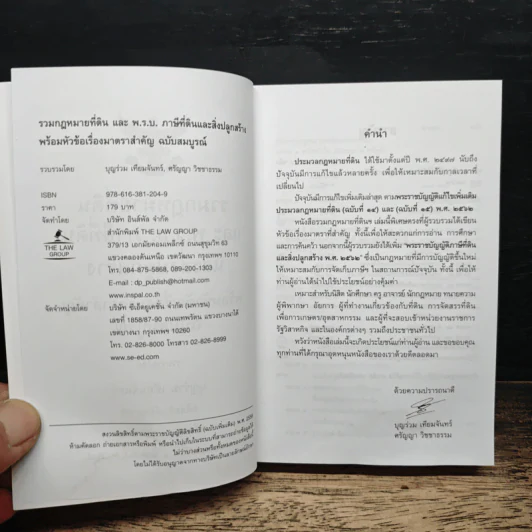 รวมกฎหมายที่ดิน และ พ.ร.บ. ภาษีที่ดินและสิ่งปลูกสร้าง
พร้อมหัวข้อเรื่องมาตราสำคัญ ฉบับสมบูรณ์
รวบรวมโดย บุญร่วม เทียมจันทร์, ศรัญญา วิชชาธรรม
ISBN 978-616-381-204-9
ราคา 179 บาท
จัดทำโดย บริษัท อินส์พัล จำกัด
สำนักพิมพ์ THE LAW GROUP
THE LAW
GROUP
379/13 เอกมัยคอมเพล็กซ์ ถนนสุขุมวิท 63
แขวงคลองตันเหนือ เขตวัฒนา กรุงเทพฯ 10110
โทร. 084-875-5868, 089-200-1303
E-mail : dp_publish@hotmail.com
www.inspal.co.th
จัดจำหน่ายโดย บริษัท ซีเอ็ดยูเคชั่น จำกัด (มหาชน)
เลขที่ 1858/87-90 ถนนเทพรัตน แขวงบางนาใต้
เขตบางนา กรุงเทพฯ 10260
โทร. 02-826-8000 โทรสาร 02-826-8999
www.se-ed.com
สงวนลิขสิทธิ์ตามพระราชบัญญัติลิขสิทธิ์ (ฉบับเพิ่มเติม) พ.ศ.
ห้ามคัดลอก ถ่ายเอกสารหรือพิมพ์ หรือนำไปเก็บในระบบที่สามารถถ่ายข้อมูลได้
ไม่ว่าบางส่วนหรือทั้งหมดของหนังสือ
โดยไม่ได้รับอนุญาตจากทางบริษัทเป็นลายลักษณ์
คำนำ
ประมวลกฎหมายที่ดิน ได้ใช้มาตั้งแต่ปี พ.ศ. ๒๔๙๗ นับถึง
ปัจจุบันมีการแก้ไขแล้วหลายครั้ง เพื่อให้เหมาะสมกับกาลเวลาที่
เปลี่ยนไป
ปัจจุบันมีการแก้ไขเพิ่มเติมล่าสุด ตามพระราชบัญญัติแก้ไขเพิ่มเติม
ประมวลกฎหมายที่ดิน (ฉบับที่ ๑๔) และ (ฉบับที่ ๑๕) พ.ศ. ๒๕๖๒
หนังสือรวมกฎหมายที่ดินฯ เล่มนี้พิเศษตรงที่ผู้รวบรวมได้เขียน
หัวข้อเรื่องมาตราสำคัญ ทั้งนี้เพื่อให้สะดวกแก่การอ่าน การศึกษา
และการค้นคว้า นอกจากนี้ผู้รวบรวมยังได้เพิ่ม "พระราชบัญญัติภาษีที่ดิน
และสิ่งปลูกสร้าง พ.ศ. ๒๕๖๒" ซึ่งเป็นกฎหมายที่มีการบัญญัติขึ้นใหม่
ให้เหมาะสมกับการจัดเก็บภาษีฯ ในสถานการณ์ปัจจุบัน ทั้งนี้ เพื่อให้
ท่านผู้อ่านได้นำไปใช้ประโยชน์อย่างคุ้มค่า
เหมาะสำหรับนิสิต นักศึกษา ครู อาจารย์ นักกฎหมาย ทนายความ
ผู้พิพากษา อัยการ ผู้ที่ทำงานเกี่ยวข้องกับที่ดิน การจัดสรรที่ดิน
เพื่อการเกษตร/อุตสาหกรรม และผู้ที่จะสอบเข้าหน่วยงานราชการ
รัฐวิสาหกิจ และในองค์กรต่างๆ รวมถึงประชาชนทั่วไป
หวังว่าหนังสือเล่มนี้จะเกิดประโยชน์แก่ท่านผู้อ่าน และขอขอบคุณ
ทุกท่านที่ได้กรุณาอุดหนุนหนังสือของเราด้วยดีตลอดมา
ด้วยความปรารถนาดี
บุญร่วม เทียมจันทร์
ศรัญญา วิชชาธรรม